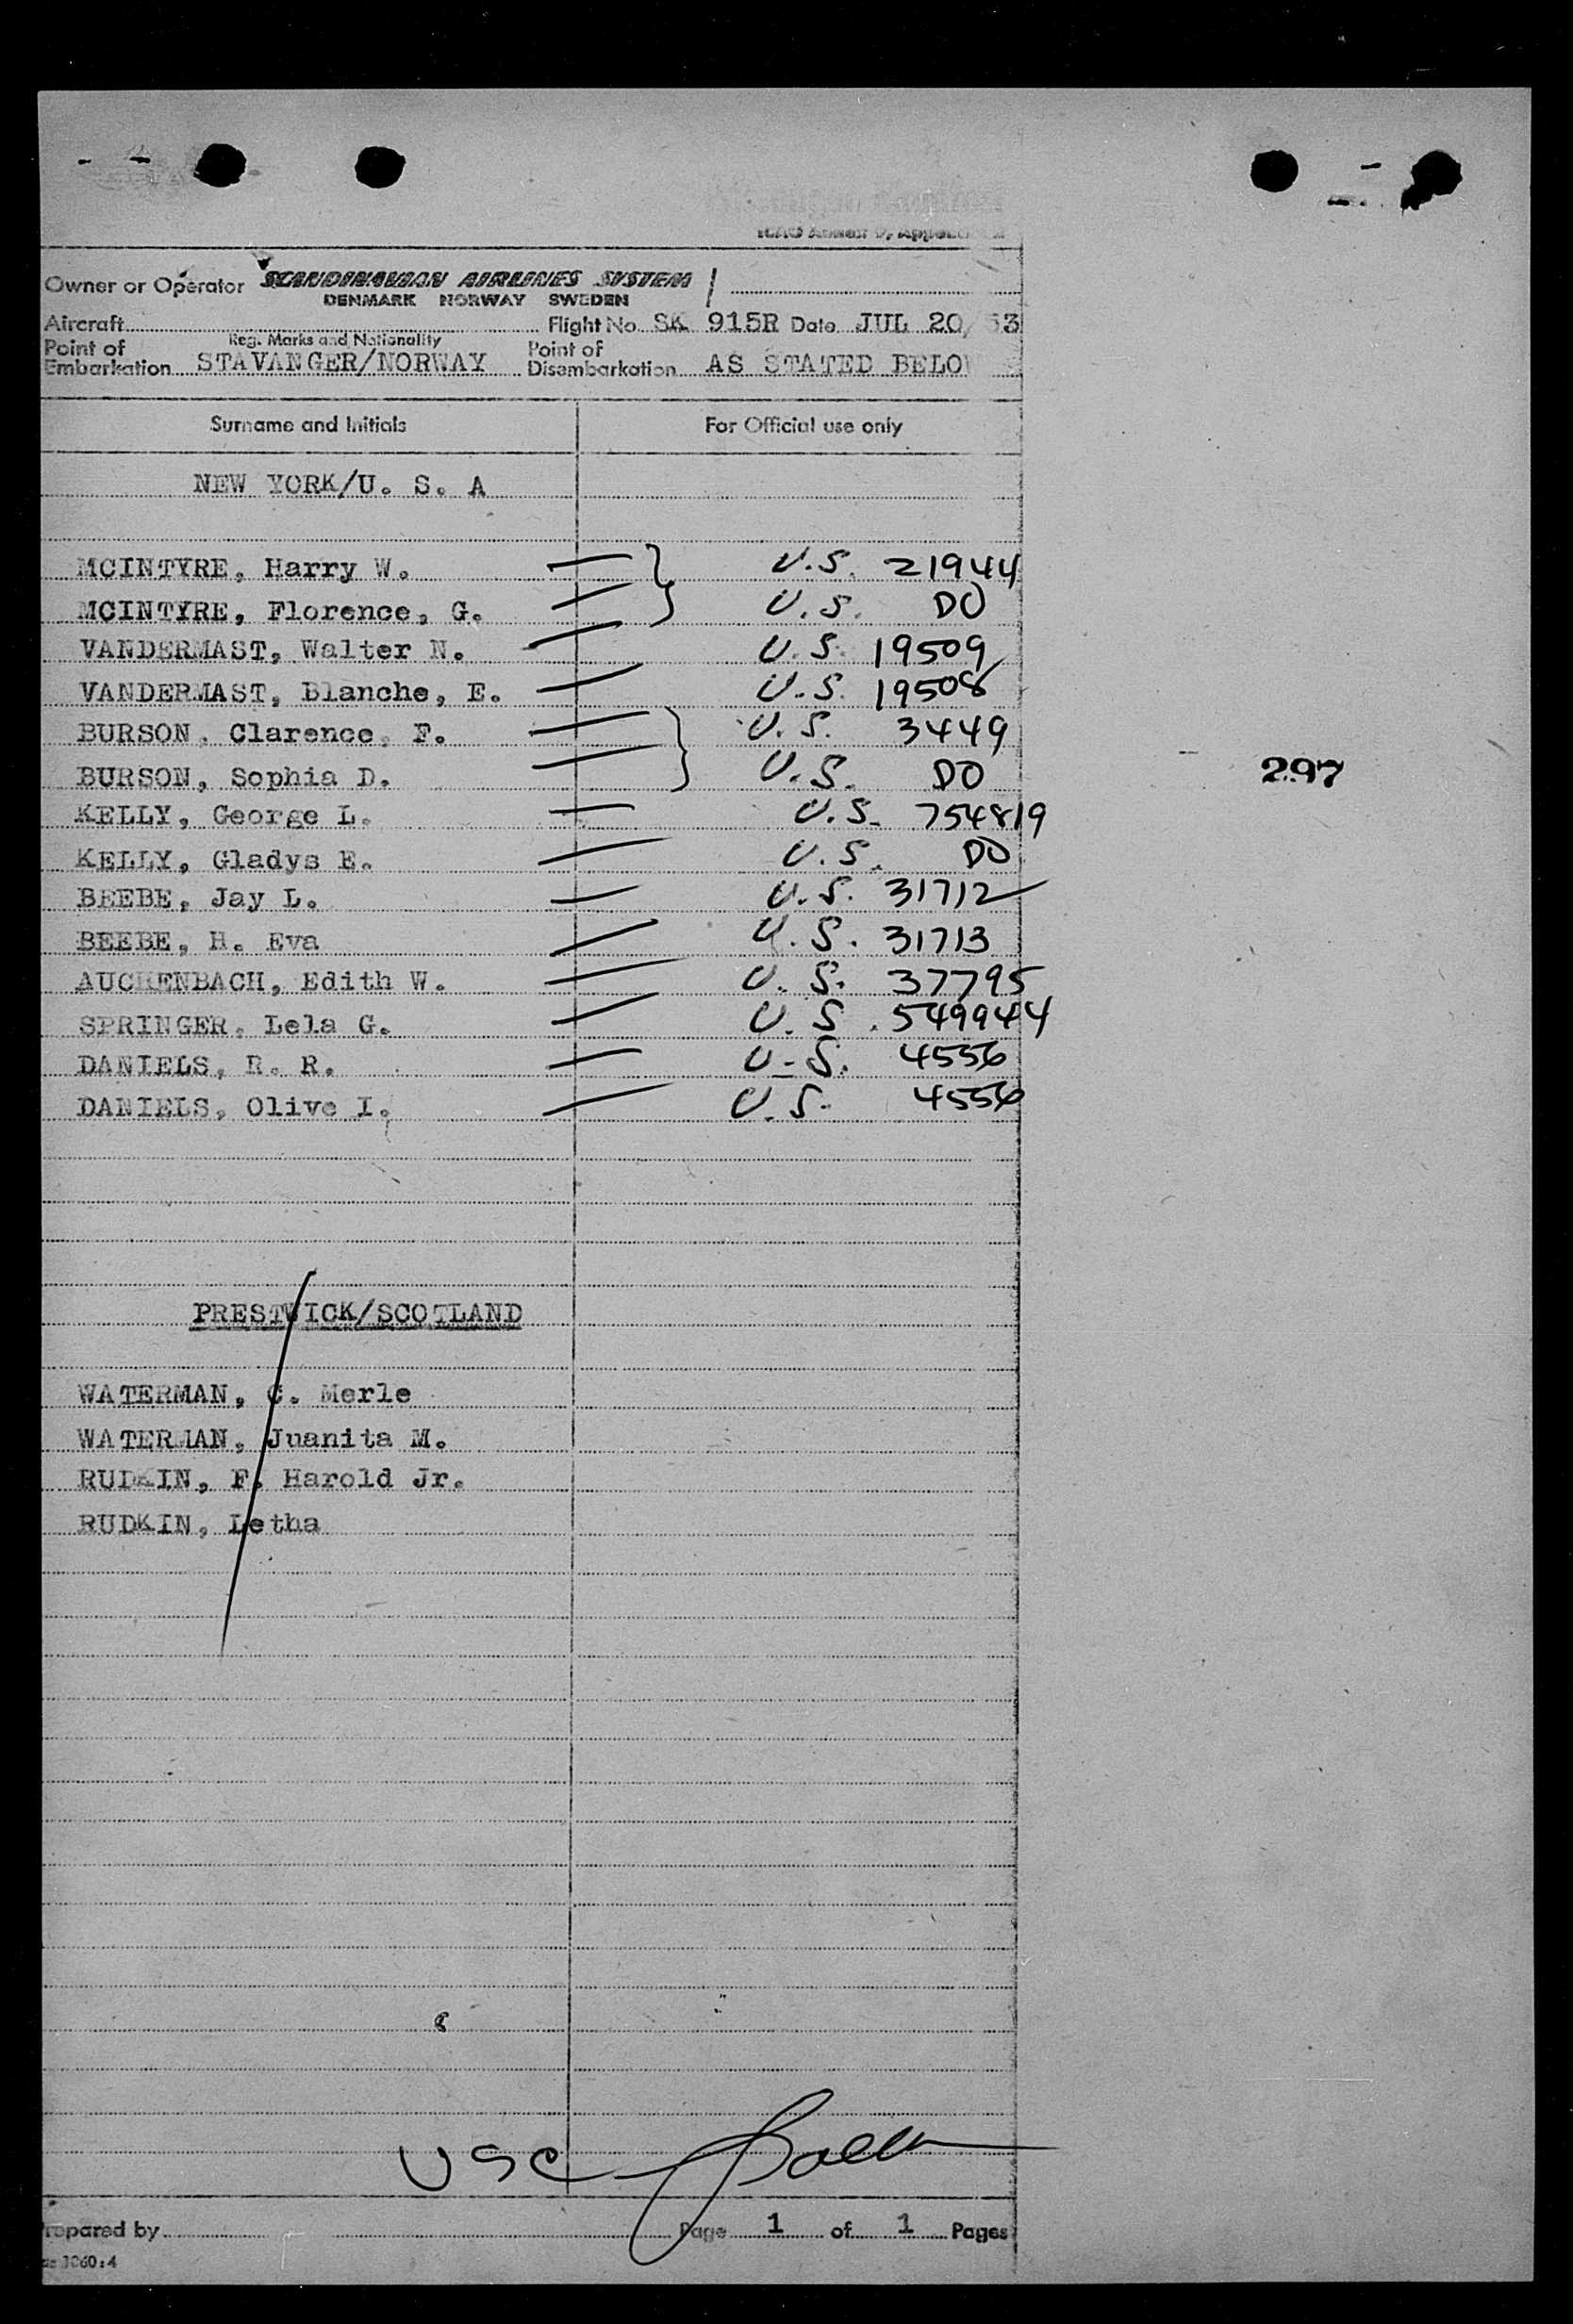 ICAO Annex 9, Appendix
Owner or Operator SCANDINAVIAN AIRLINES SYSTEM
DENMARK NORWAY SWEDEN
Aircraft Flight No. SK 915R Date JUL 20/53
Reg. Marks and Nationality
Point of Embarkation STAVANGER/NORWAY Point of Disembarkation AS STATED BELO
Surname and Initials For Official use only
NEW YORK/U. S. A
MCINTYRE, Harry W. U.S. 21944
MCINTYRE, Florence, G. U.S. DO
VANDERMAST, Walter N. U.S. 19509
VANDERMAST, Blanche, E. U.S. 19508
BURSON, Clarence, F. U.S. 3449
BURSON, Sophia D. U.S. DO
297
KELLY, George L. U.S. 754819
KELLY, Gladys E. U.S. DO
BEEBE, Jay L. U.S. 31712
BEEBE, H. Eva U.S. 31713
AUCHENBACH, Edith W. U.S. 37795
SPRINGER, Lela G. U.S. 549944
DANIELS, R. R. U.S. 4556
DANIELS, Olive I. U.S. 4556
PRESTWICK/SCOTLAND
WATERMAN, C. Merle
WATERMAN, Juanita M.
RUDKIN, F. Harold Jr.
RUDKIN, Letha
USC
repared by Page 1 of 1 Pages
1060:4